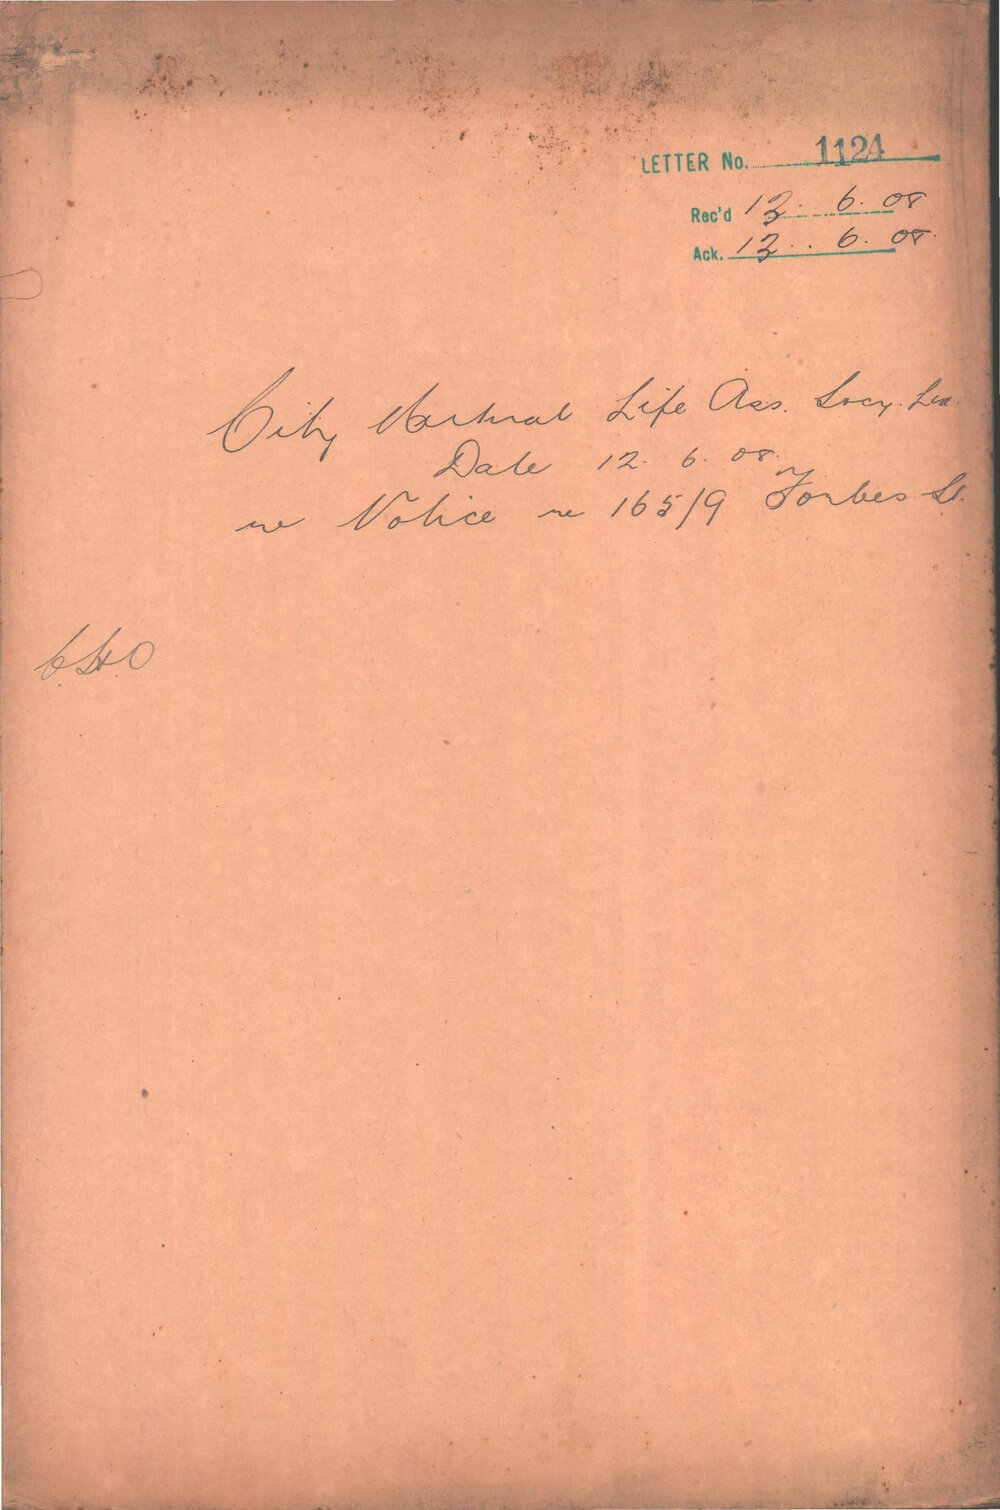 LETTER No. 1124
Rec'd 12. 6. 08
Ack. 12. 6. 08.
City Mutual Life Ass. Socy. Ltd.
Date 12. 6. 08.
re Notice re 165/9 Forbes St.
CHO